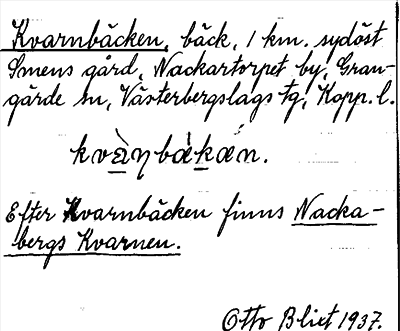 Kvarnbäcken, bäck, 1 km. sydöst
Smens gård, Nackartorpet by, Gran-
gärde sn, Västerbergslags tg, Kopp. l.
kvàηbàkän.
Efter Kvarnbäcken finns Nacka-
bergs Kvarnen.
Otto Blixt 1937.